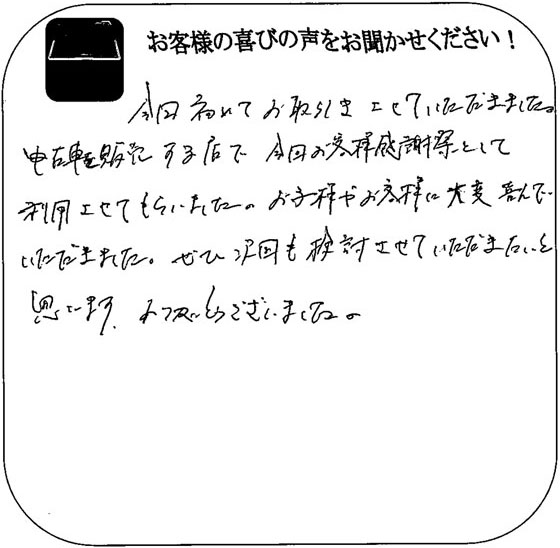 お客様の喜びの声をお聞かせください！
今回初めてお取引きさせていただきました。
中古車を販売する店で今回お客様感謝祭として
利用させてもらいました。お子様やお客様に大変喜んで
いただきました。ぜひ次回も検討させていただきたいと
思います。ありがとうございました。